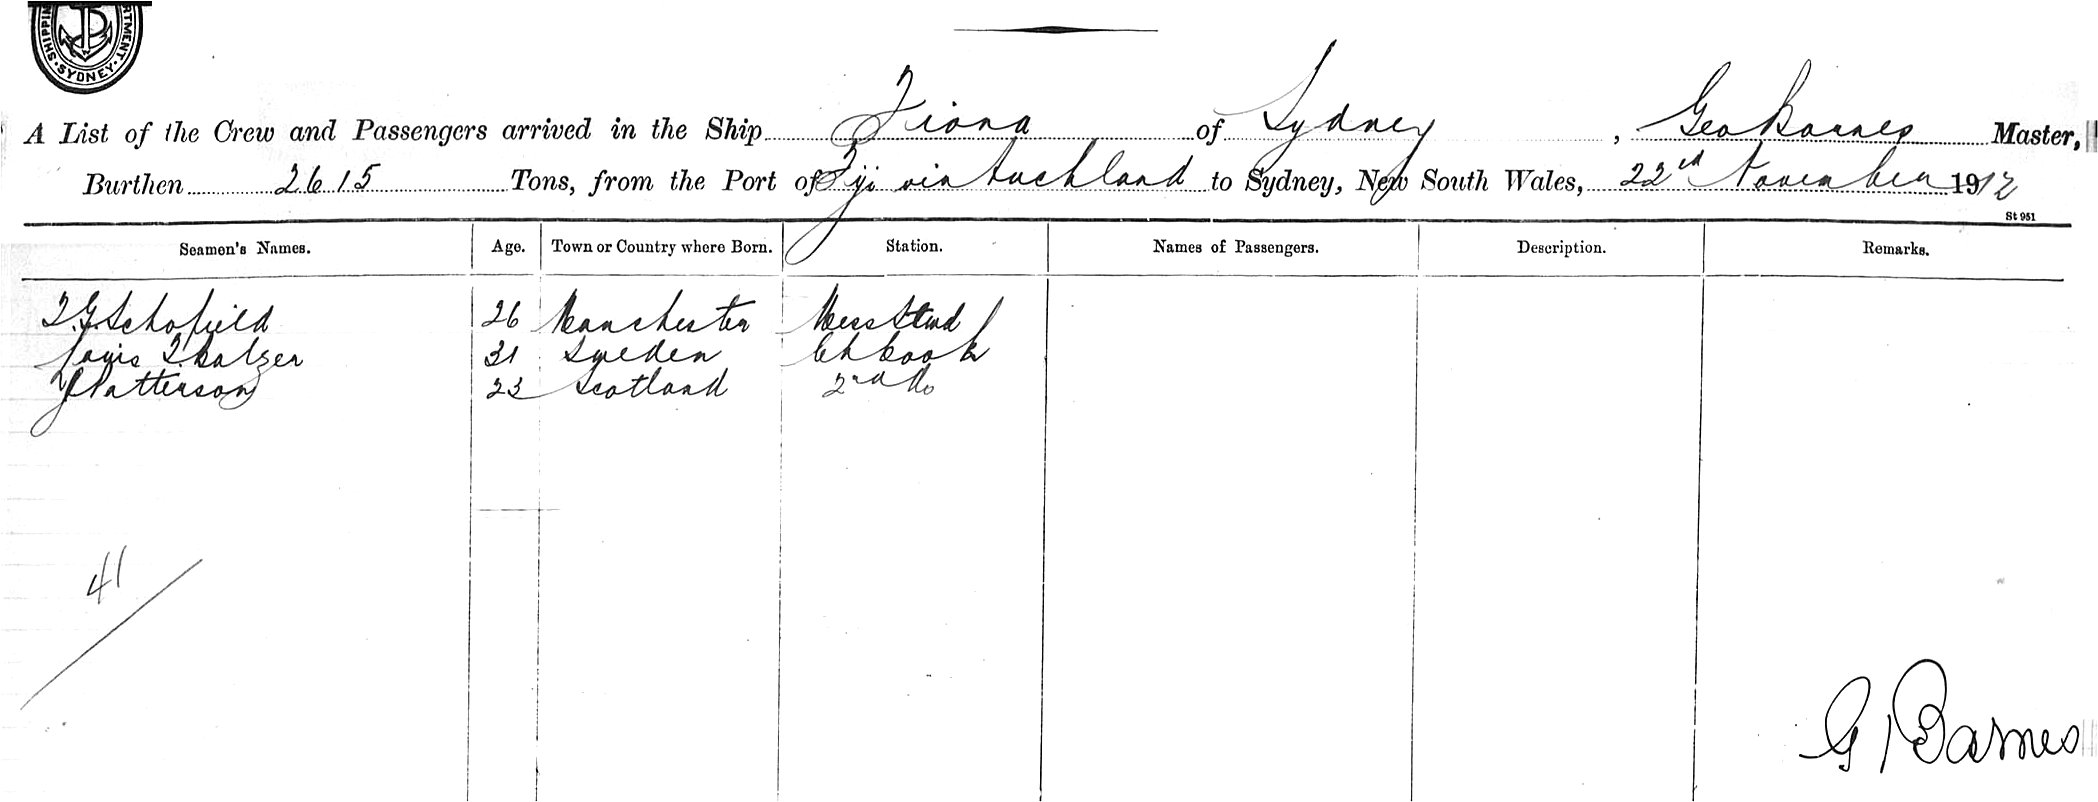 SHIPPIN RTMENT. SYDNEY.
A List of the Crew and Passengers arrived in the Ship Fiona of Sydney, Geo Barnes Master,
Burthen 2615 Tons, from the Port of Fiji via Auckland to Sydney, New South Wales, 22nd November 1912
St 951
Seamen's Names. Age. Town or Country where Born. Station. Names of Passengers. Description. Remarks.
Schofield 26 Manchester Mess Stwd
Louis 31 Sweden Ch Cook
J Patterson 23 Scotland 2nd Do
41
G Barnes